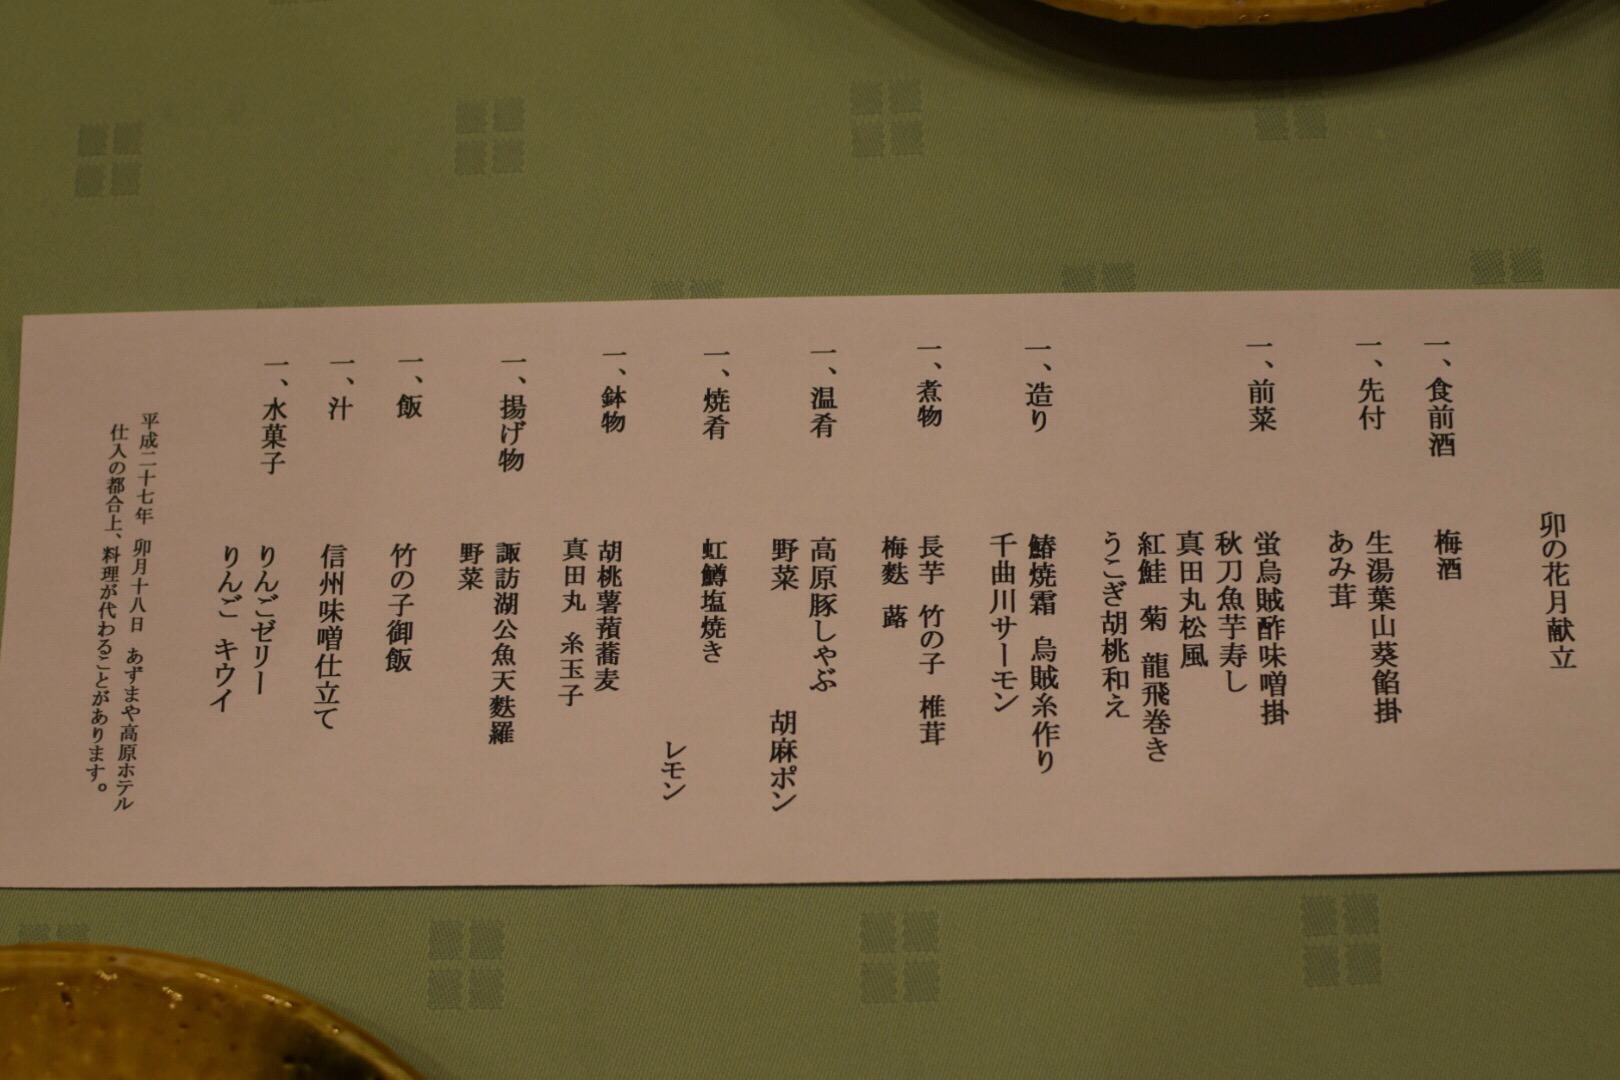 卯の花月献立
一、食前酒 梅酒
一、先付 生湯葉山葵餡掛
あみ茸
一、前菜 蛍烏賊酢味噌掛
秋刀魚芋寿し
真田丸松風
紅鮭 菊 龍飛巻き
うこぎ胡桃和え
一、造り 鰆焼霜 烏賊糸作り
千曲川サーモン
一、煮物 長芋 竹の子 椎茸
梅麩 蕗
一、温肴 高原豚しゃぶ
野菜 胡麻ポン
一、焼肴 虹鱒塩焼き
レモン
一、鉢物 胡桃薯蕷蕎麦
真田丸 糸玉子
一、揚げ物 諏訪湖公魚天麩羅
野菜
一、飯 竹の子御飯
一、汁 信州味噌仕立て
一、水菓子 りんごゼリー
りんご キウイ
平成二十七年 卯月十八日 あずまや高原ホテル
仕入の都合上、料理が代わることがあります。